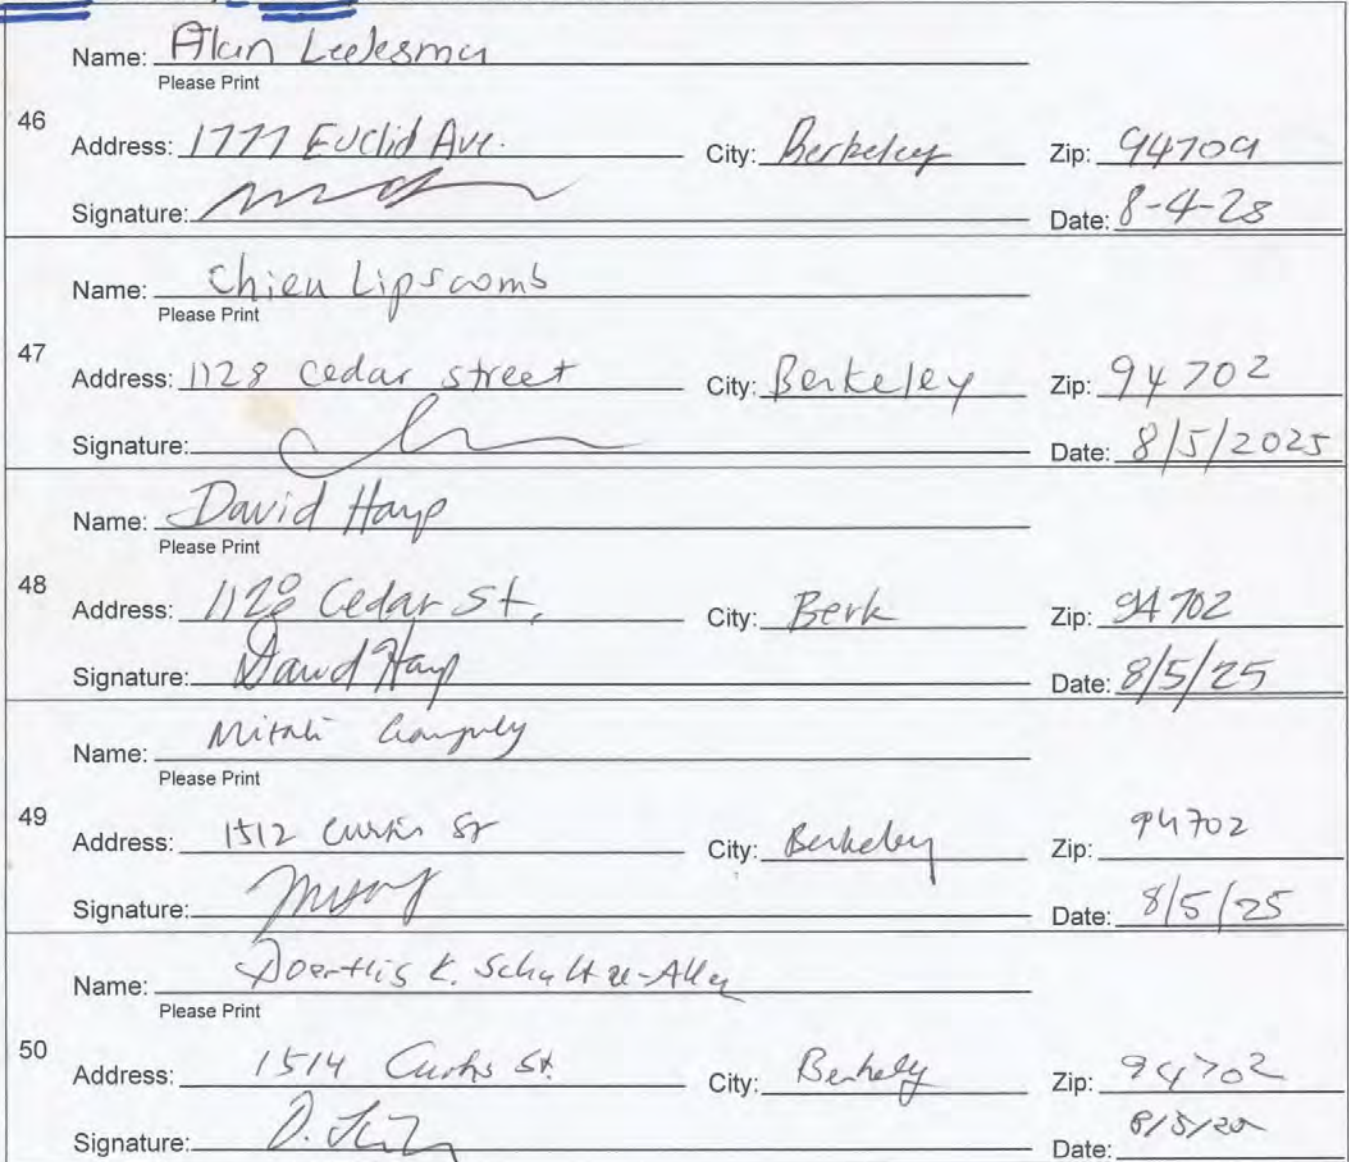 Name: Alan Ledesma
Please Print
46
Address: 1777 Euclid Ave. City: Berkeley Zip: 94709
Signature: Date: 8-4-25
Name: Chien Lipscomb
Please Print
47
Address: 1128 Cedar street City: Berkeley Zip: 94702
Signature: Date: 8/5/2025
Name: David Hamp
Please Print
48
Address: 1128 Cedar St. City: Berk Zip: 94702
Signature: David Date: 8/5/25
Name: Mitali Ganguly
Please Print
49
Address: 1512 Curtis St City: Berkeley Zip: 94702
Signature: Date: 8/5/25
Name: K. Schultze-Allen
Please Print
50
Address: 1514 Curtis St. City: Berkely Zip: 94702
Signature: Date: